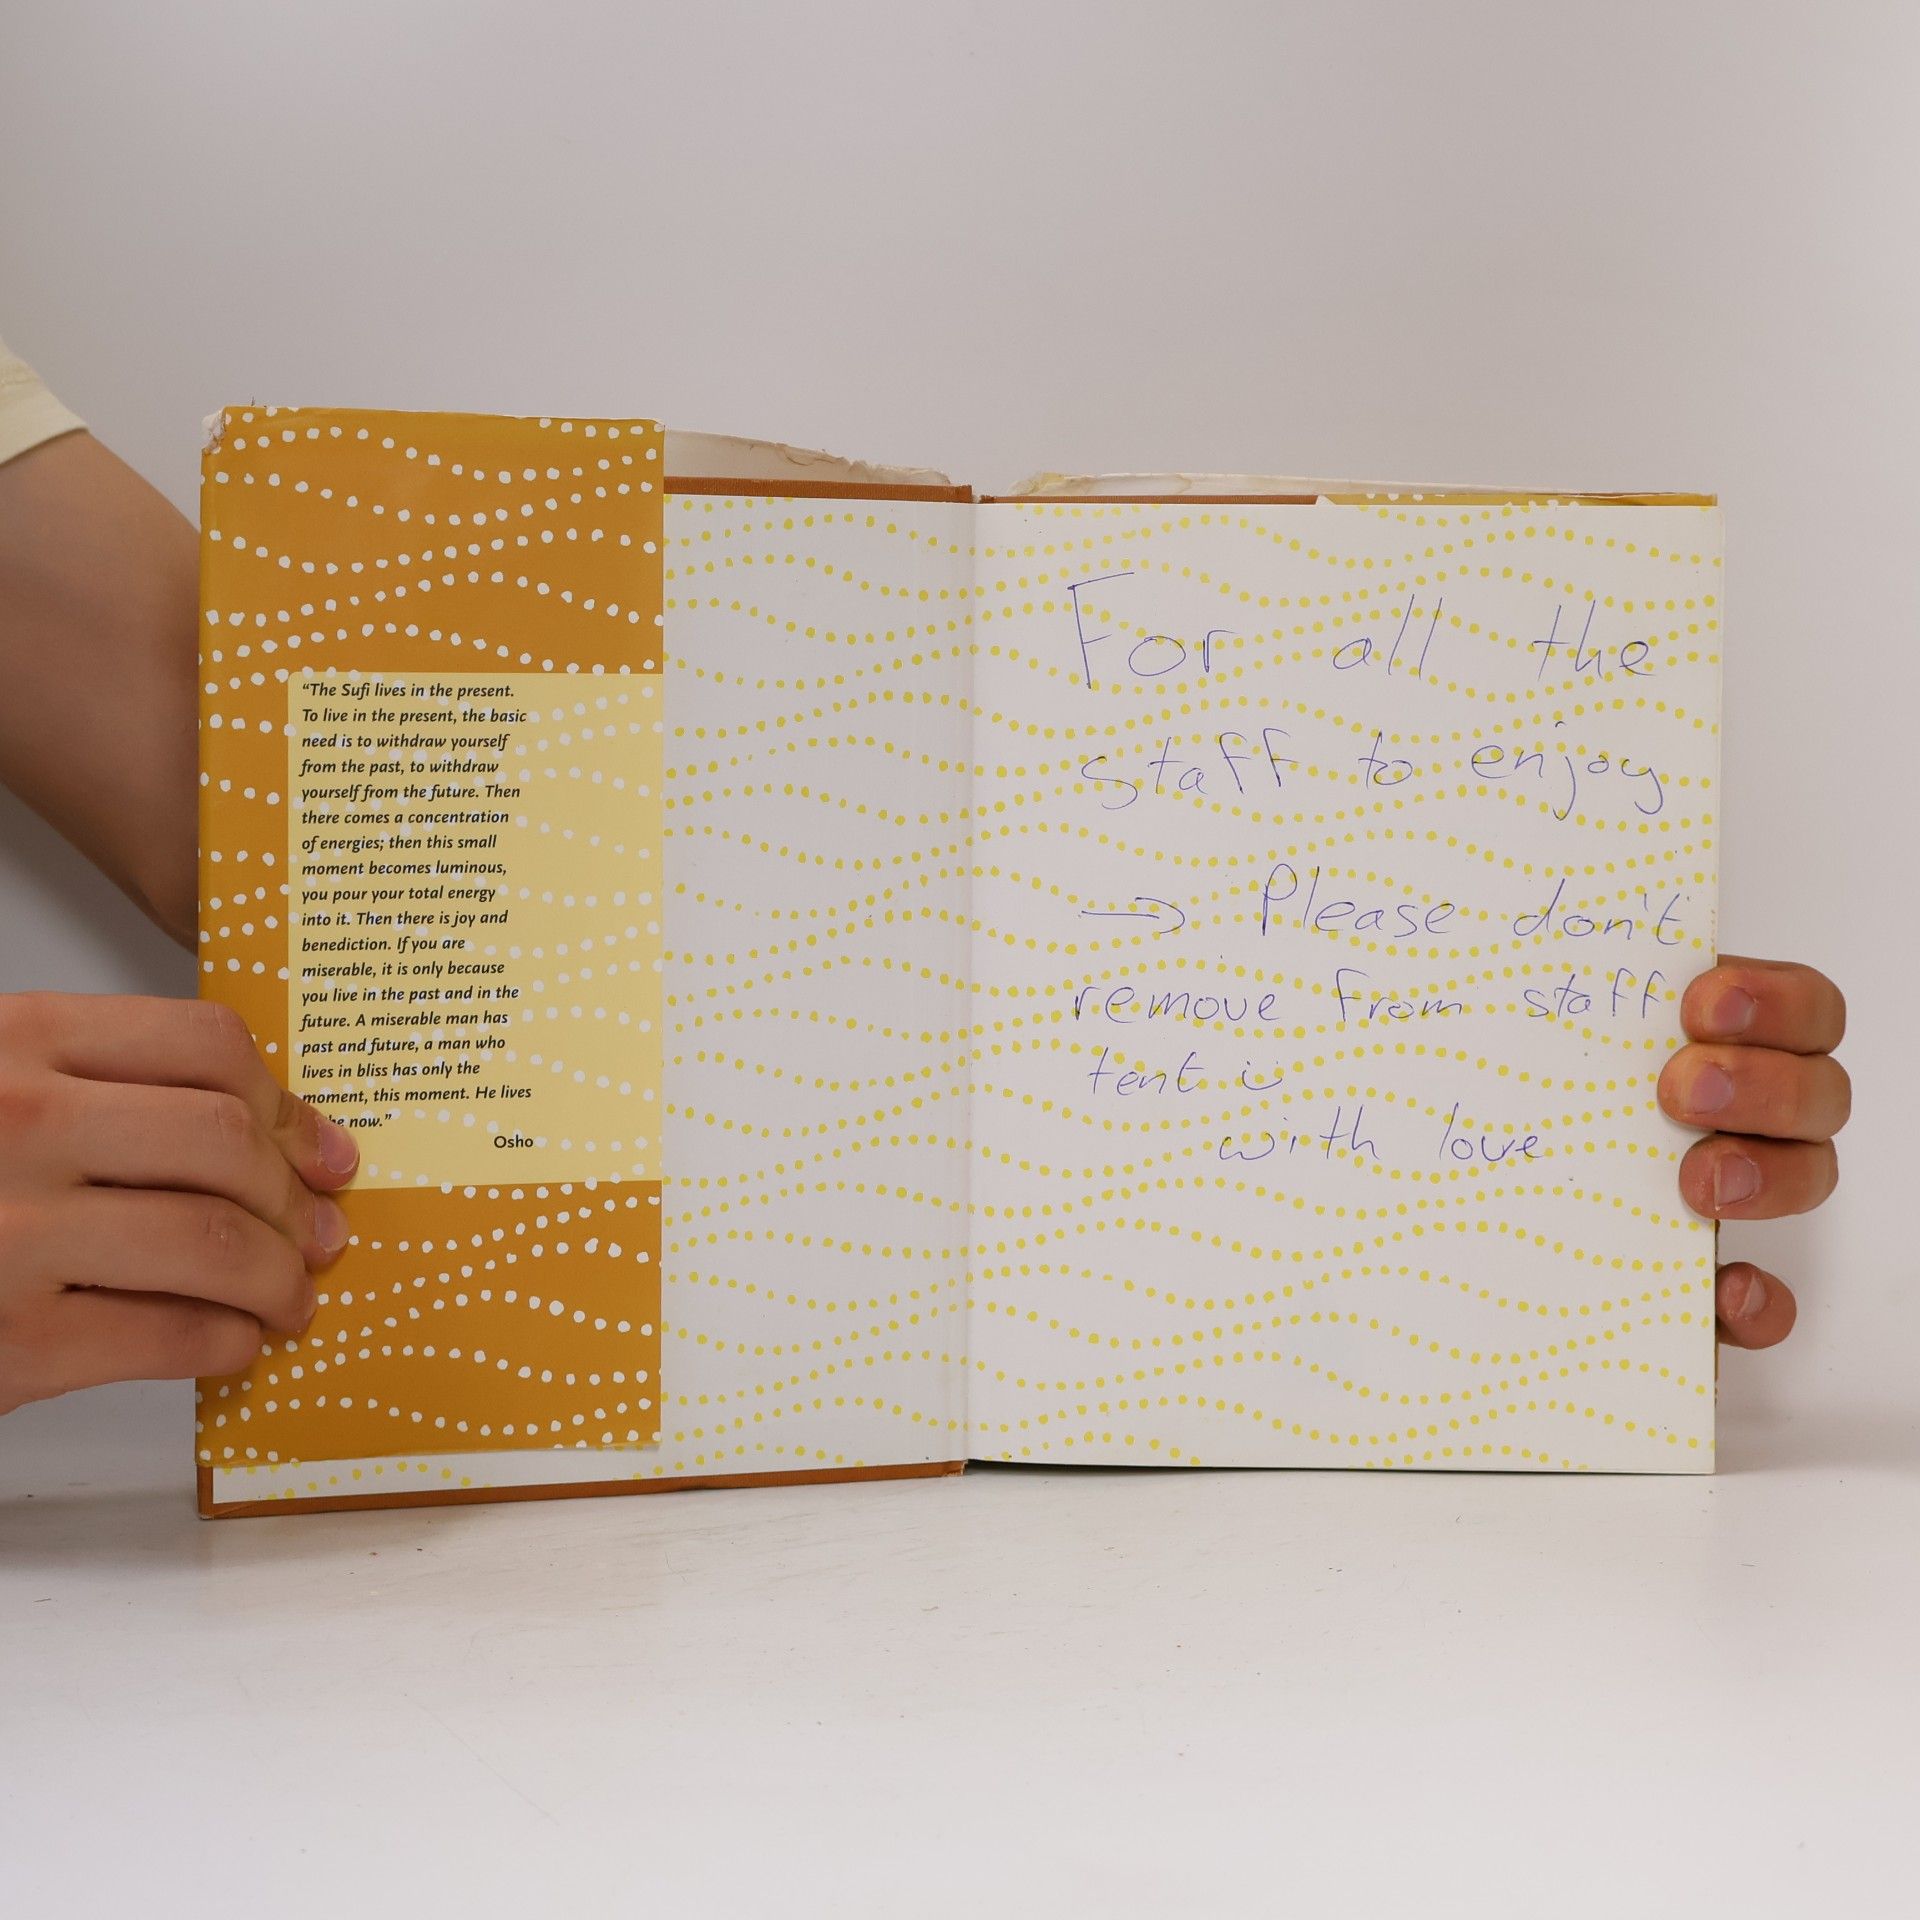 “The Sufi lives in the present.
To live in the present, the basic
need is to withdraw yourself
from the past, to withdraw
yourself from the future. Then
there comes a concentration
of energies; then this small
moment becomes luminous,
you pour your total energy
into it. Then there is joy and
benediction. If you are
miserable, it is only because
you live in the past and in the
future. A miserable man has
past and future, a man who
lives in bliss has only the
moment, this moment. He lives
now.”
Osho
For all the
staff to enjoy
→ Please don't
remove from staff
tent ü
with love